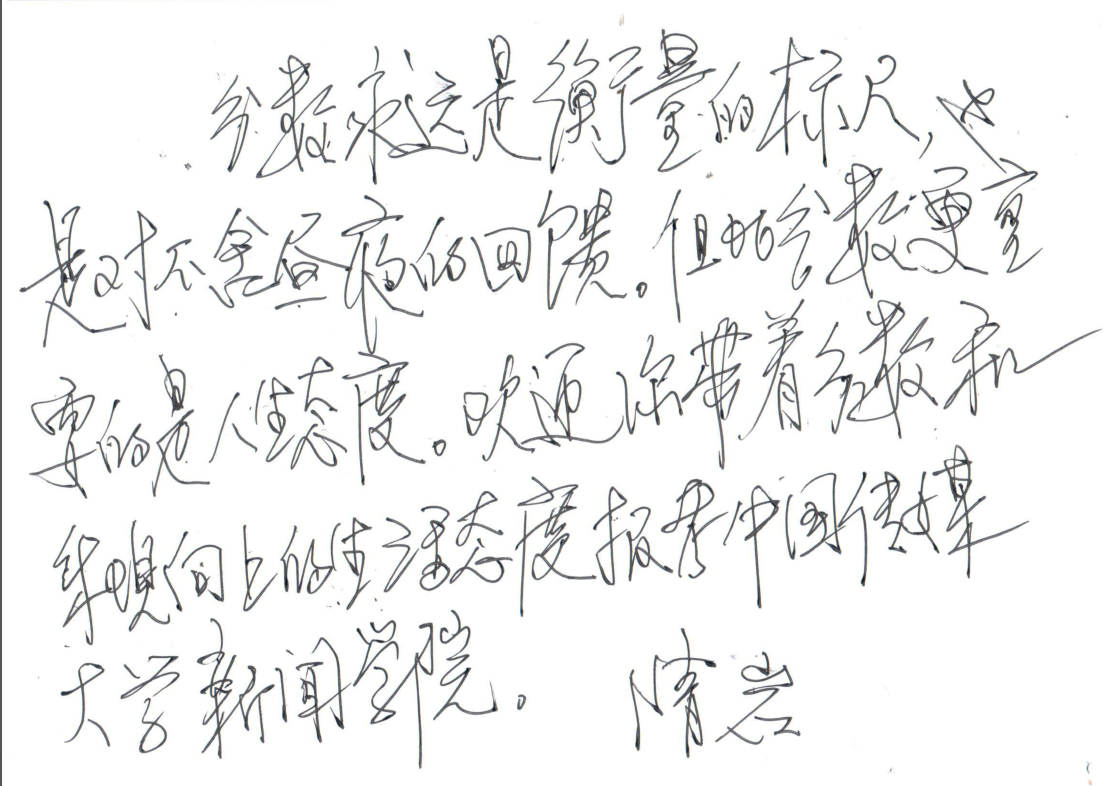 分数永远是衡量的标尺，也
是对不舍昼夜的回馈。但比分数更重
要的是人生态度。欢迎你带着分数和
年轻向上的生活态度报考中国传媒
大学新闻学院。 隋岩